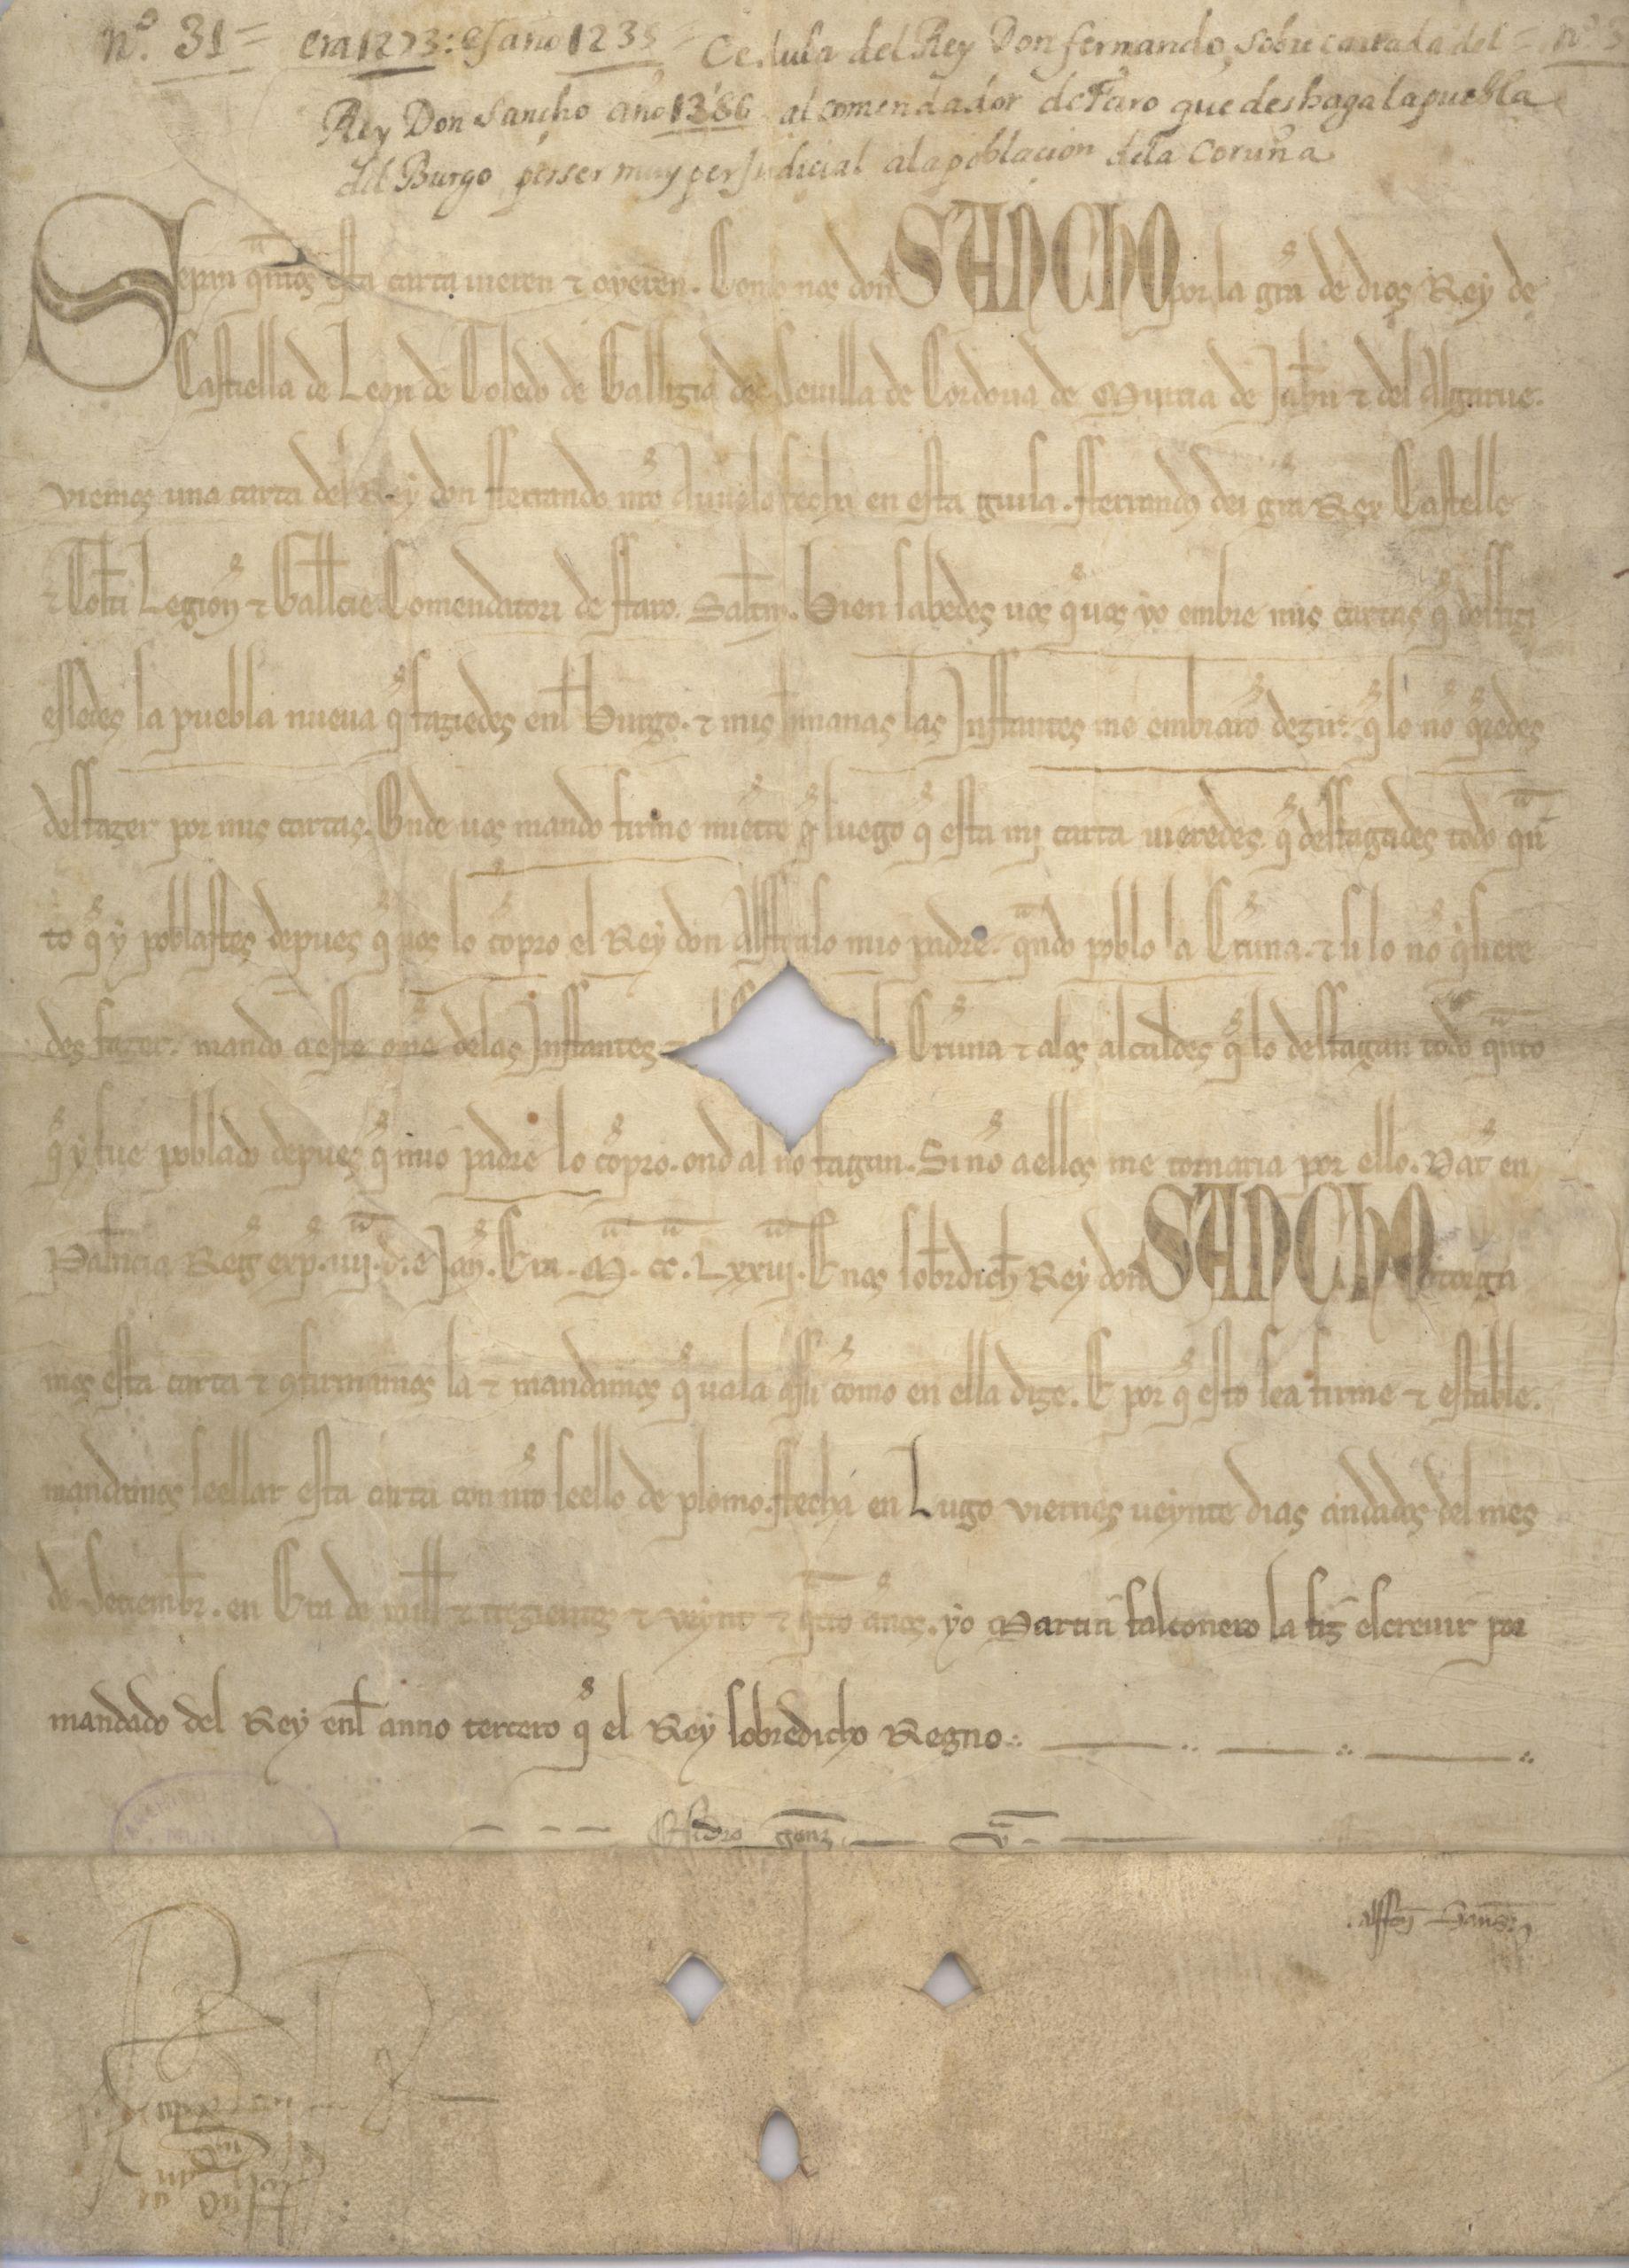 nº. 31 = era 1273: es año 1235 = Cedula del Rey Don fernando, sobre cartada del = nº. 3
Rey Don Sancho año 1386 al comendador de Faro que deshaga la puebla
del Burgo por ser muy perjudicial a la poblacion de la Coruña
Sepan qntos esta carta uieren et oyeren. Como nos don SANCHO por la gra de dios Rey de
Castiella de Leon de Toledo de Gallizia de Seuilla de Cordoua de Murcia de Jahn et del Algarue.
viemos una carta del Rey don fferrando nro auuelo fecha en esta guisa. fferrandus dei gra Rex Castelle
et Tolti Legion et Gallecie Comendatori de ffaro. Saltm. Bien sabedes uos q uos yo embie mis cartas q desfizi
essedes la puebla nueua q faziedes enl Burgo. et mis hrmanas las Jnffantes me embiaro dezir. q lo no qredes
desfazer por mis cartas. Onde uos mando firme miete q luego q esta mj carta uieredes. q desfagades todo qn
to q y poblastes depues q uos lo copro el Rey don Alffonso mio padre. qndo poblo la Cruna. et si lo no qsiere
des fazer. mando a este ome delas Jnffantes Cruna et alos alcaldes q lo desfagan todo qnto
q y fue poblado depues q mio padre lo copro. end al no fagan. Si no a ellos me tornaria por ello. Dat en
Palencia Reg exp. iiij. die Jan. Era. M. cc. Lxxiij. E nos sobrdich Rey don SANCHO otorga
mos esta carta et confirmamos la et mandamos q uala assi como en ella dize. E por q esto sea firme et estable.
mandamos seellar esta carta con nro seello de plomo. ffecha en Lugo viernes ueynte dias andados del mes
de Setiembr. en Era de mill et trezientos et veynt et qtro anos. yo Martin falconero la fiz escreuir por
mandado del Rey enl anno tercero q el Rey sobredicho Regno.
Isidro gonz
alffon